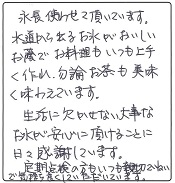 永長使わせて頂いています。
水道から出るお水がおいしい
お蔭でお料理もいつも上手
く作れ、勿論お茶も美味
く味わえています。
生活に欠かせない大事な
お水が安心に頂けることに
日々感謝しています。
定期点検の方もいつも親切でていねい
で気持ち良くしていただいています。